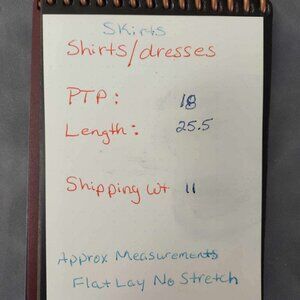 Skirts
Shirts/dresses
PTP: 18
Length: 25.5
Shipping wt 11
Approx Measurements
Flat Lay No Stretch